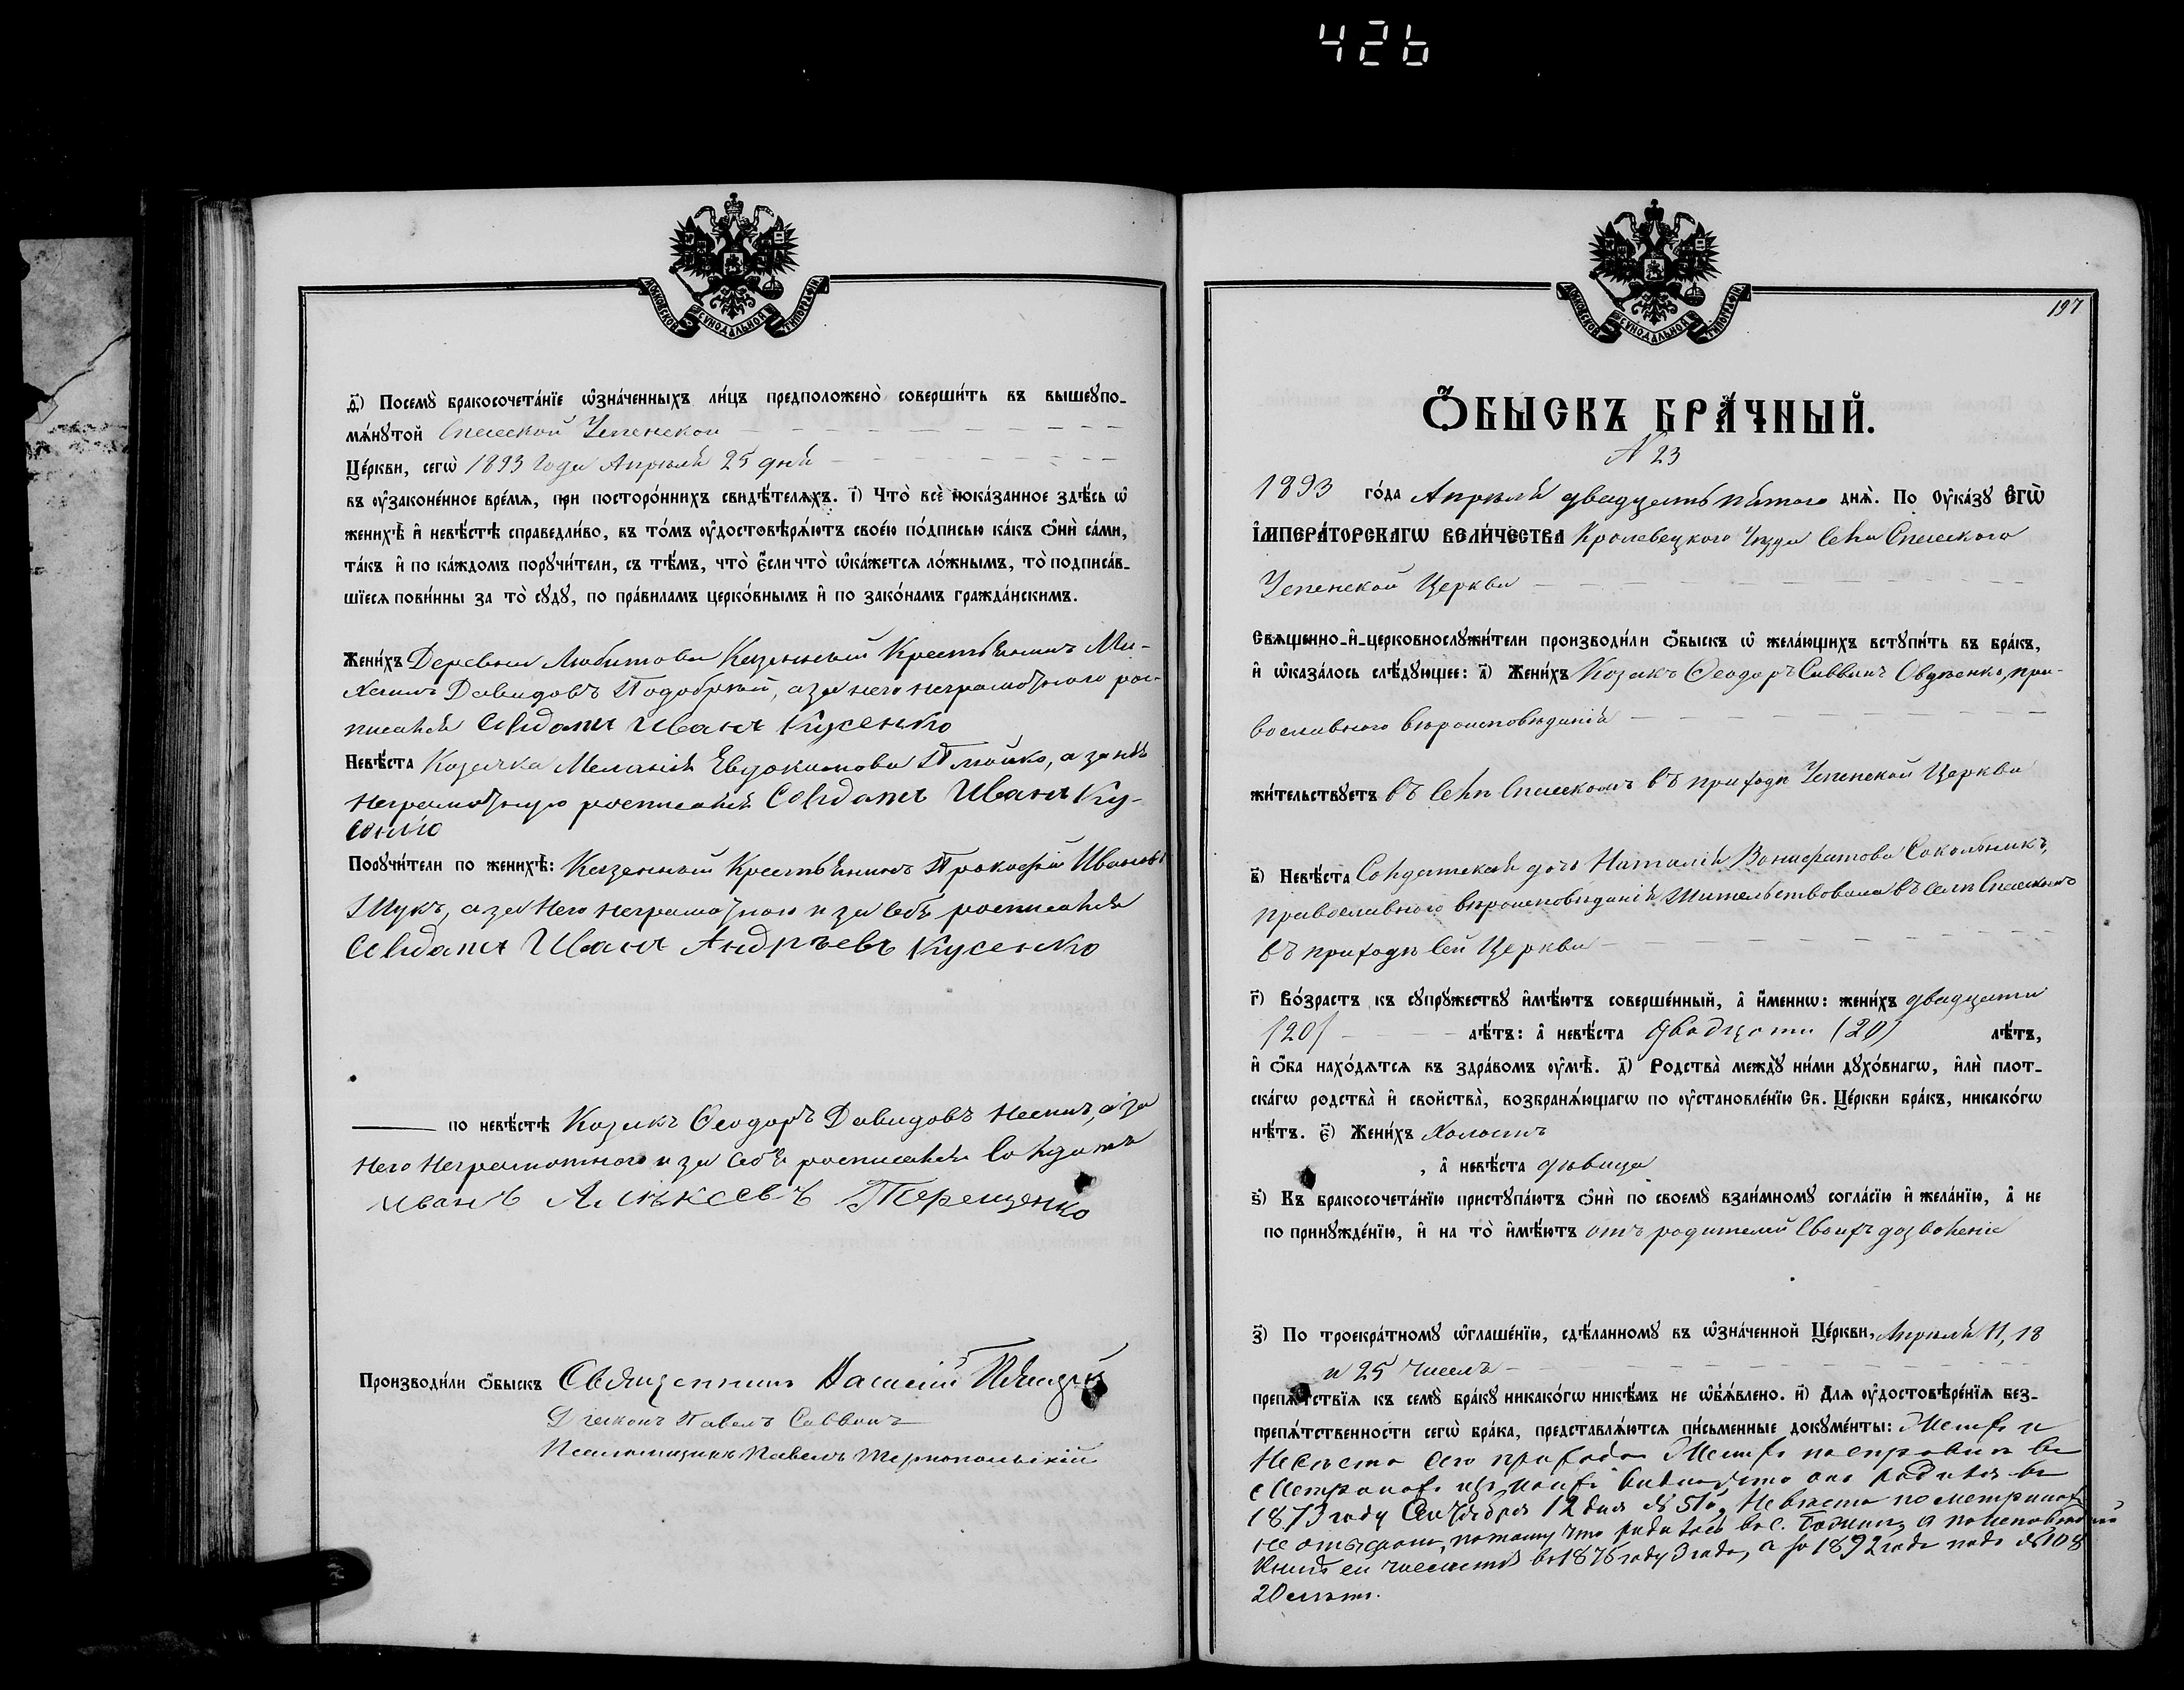 426
МОСКОВСКОЙ СѴНОДАЛЬНОЙ ТИПОГРАФІИ
д҃) Посемꙋ̀ бракосочета́нїе ѡ҆зна́ченныхъ ли́цъ предположено̀ соверши́ть въ вышеꙋпо-
мѧ́нꙋтой Спасской Успенской
Це́ркви, сегѡ̀ 1893 года Апрѣля 25 дня
въ ᲂу҆законе́нное вре́мѧ, при посторо́ннихъ свидѣ́телѧхъ. і҃) Что̀ всѐ пока́занное здѣ́сь ѡ҆
женихѣ̀ и҆ невѣ́стѣ справедли́во, въ то́мъ ᲂу҆достовѣрѧ́ютъ свое́ю по́дписью ка́къ ѻ҆нѝ са́ми,
та́къ и҆ по ка́ждомъ порꙋчи́тели, съ тѣ́мъ, что̀ є҆́сли что̀ ѡ҆ка́жетсѧ ло́жнымъ, то̀ подписа́в-
шїесѧ пови́нны за то̀ сꙋдꙋ̀, по пра́виламъ церко́внымъ и҆ по зако́намъ гражда́нскимъ.
Жени́хъ Деревни Любитова Казенный Крестьянинъ Ми-
хаилъ Давидовъ Подобрый, а за него неграмотного рос-
писался Солдатъ Иванъ Кусенко
Невѣ́ста Козачка Меланія Евдокимова, а за нея
неграмотную росписался Солдатъ Иванъ Ку-
сенко
Порꙋчи́тели по женихѣ̀: Казенный Крестьянинъ Прокофій Ивановъ
Щукъ, а за него неграмотного и за себя росписался
Солдатъ Иванъ Андрѣевъ Кусенко
по невѣ́стѣ Козакъ Ѳеодоръ Давидовъ, а за
него неграмотного и за себя росписался Солдатъ
Иванъ Алѣксѣевъ Терещенко
Производи́ли ѻ҆́быскъ Священникъ Василій
Діаконъ Павелъ Саввичъ
Псаломщикъ Павелъ Тернопольскій
МОСКОВСКОЙ СѴНОДАЛЬНОЙ ТИПОГРАФІИ
197
Ѻ҆́БЫСКЪ БРА́ЧНЫЙ.
N 23
1893 го́да Апрѣля двадцать пятого днѧ̀. По ᲂу҆ка́зꙋ Є҆ГѠ̀
І҆МПЕРА́ТОРСКАГѠ ВЕЛИ́ЧЕСТВА Кролевецкого Уѣзда Села Спасского
Успенской Церкви
Свѧщенно-и҆-церковнослꙋжи́тели производи́ли ѻ҆́быскъ ѡ҆ жела́ющихъ встꙋпи́ть въ бра́къ,
и҆ ѡ҆каза́лось слѣ́дꙋющее: а҃) Жени́хъ Козакъ Ѳеодоръ Саввинъ Овдѣенко, пра-
вославного вѣроисповѣданія
жи́тельствꙋетъ въ Селѣ Спасскомъ въ приходѣ Успенской Церкви
в҃) Невѣ́ста Солдатская дочь Наталія Вонифатова Сокольникъ,
православного вѣроисповѣданія жительствовала въ селѣ Спасскомъ
въ приходѣ сей Церкви
г҃) Во́зрастъ къ сꙋпрꙋ́жествꙋ и҆мѣ́ютъ соверше́нный, а҆ и҆́меннѡ: жени́хъ двадцати
/20/ лѣ́тъ: а҆ невѣ́ста двадцати /20/ лѣ́тъ,
и҆ ѻ҆́ба нахо́дѧтсѧ въ здра́вомъ ᲂу҆мѣ̀. д҃) Родства̀ междꙋ̀ ни́ми дꙋхо́внагѡ, и҆лѝ плот-
ска́гѡ родства̀ и҆ свойства̀, возбранѧ́ющагѡ по ᲂу҆становле́нїю Св. Це́ркви бра́къ, никако́гѡ
нѣ́тъ. є҃) Жени́хъ Холостъ
, а҆ невѣ́ста дѣвица
ѕ҃) Къ бракосочета́нїю пристꙋпа́ютъ ѻ҆нѝ по своемꙋ̀ взаи́мномꙋ согла́сїю и҆ жела́нїю, а҆ не
по принꙋжде́нїю, и҆ на то̀ и҆мѣ́ютъ отъ родителей своихъ дозволеніе
з҃) По троекра́тномꙋ ѡ҆глаше́нїю, сдѣ́ланномꙋ въ ѡ҆зна́ченной Це́ркви, Апрѣля 11, 18
и 25 чиселъ
препѧ́тствїѧ къ семꙋ̀ бра́кꙋ никако́гѡ никѣ́мъ не ѡ҆б̾ѧ́влено. и҃) Длѧ ᲂу҆достовѣре́нїѧ без-
препѧ́тственности сегѡ̀ бра́ка, представлѧ́ютсѧ пи́сьменные докꙋме́нты: Женихъ и
Невѣста сего прихода. Женихъ по справкѣ въ
метрикахъ видно что онъ родился въ
1873 году 12 дня № 51й, Невѣста по метрикахъ
не отыскана, потому что родилась въ с. а по исповѣдной
книгѣ ей числится въ 1876 году 3 года, а за 1892 годъ подъ № 108
20 лѣтъ.